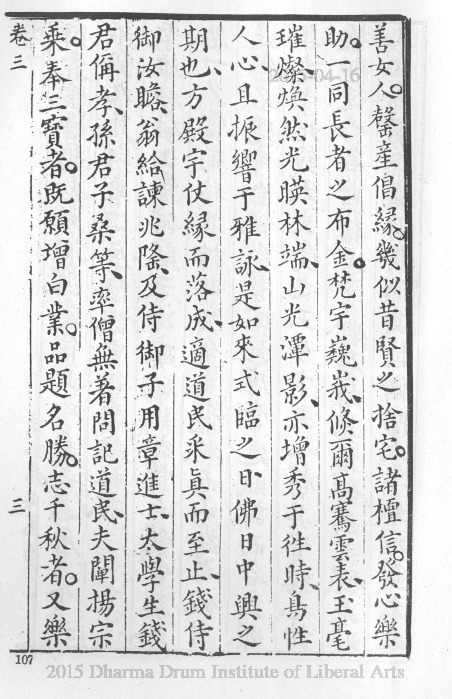 善女人。罄產倡緣。幾似昔賢之捨宅。諸檀信。發心樂
助。一同長者之布金。梵宇巍峩、倐爾高騫雲表、玉毫
璀燦、煥然光暎林端、山光潭影、亦增秀于徃時、鳥性
人心、且振響于雅詠、是如來式臨之日、佛日中興之
期也、方殿宇仗緣而落成、適道民釆真而至止、錢侍
御汝瞻、翁給諫兆隆、及侍御子用章進士、太學生錢
君偁孝、孫君子桑等、率僧無著問記道民、夫闡揚宗
乘。奉三寶者。既願增白業。品題名勝。志千秋者。又樂
卷三
三
107
2015 Dharma Drum Institute of Liberal Arts